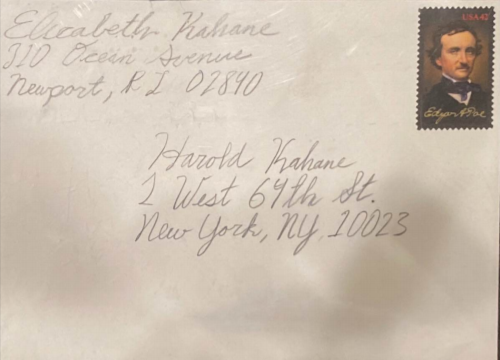 Elizabeth Kahane
310 Ocean Avenue
Newport, RI 02840
USA 42
Edgar A Poe
Harold Kahane
2 West 64th St.
New York, NY 10023